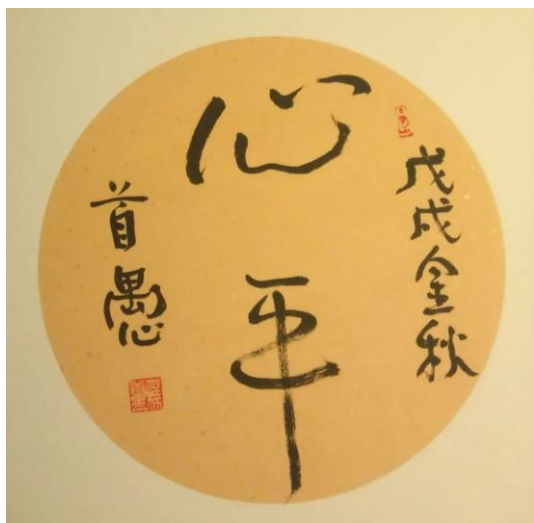 戊戌金秋
心平
首愚